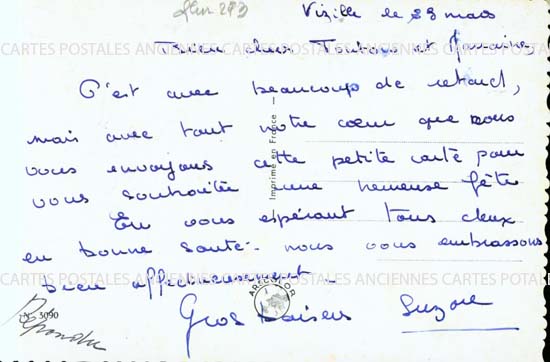 Vizille le 23 mars
Bien chers Tontons et Marraine
C'est avec beaucoup de retard,
mais avec tout notre cœur que nous
vous envoyons cette petite carte pour
vous souhaiter une heureuse fête
En vous espérant tous deux
en bonne santé - nous vous embrassons
bien affectueusement.
Gros baisers Suzone
Imprimé en France
ARECOLOR
N° 3090
Répondre
CARTES POSTALES ANCIENNES CARTES POSTALES ANCIENNES CARTES POTALES
CARTES POSTALES ANCIENNES CARTES POSTALES ANCIENNES CARTES POTALES